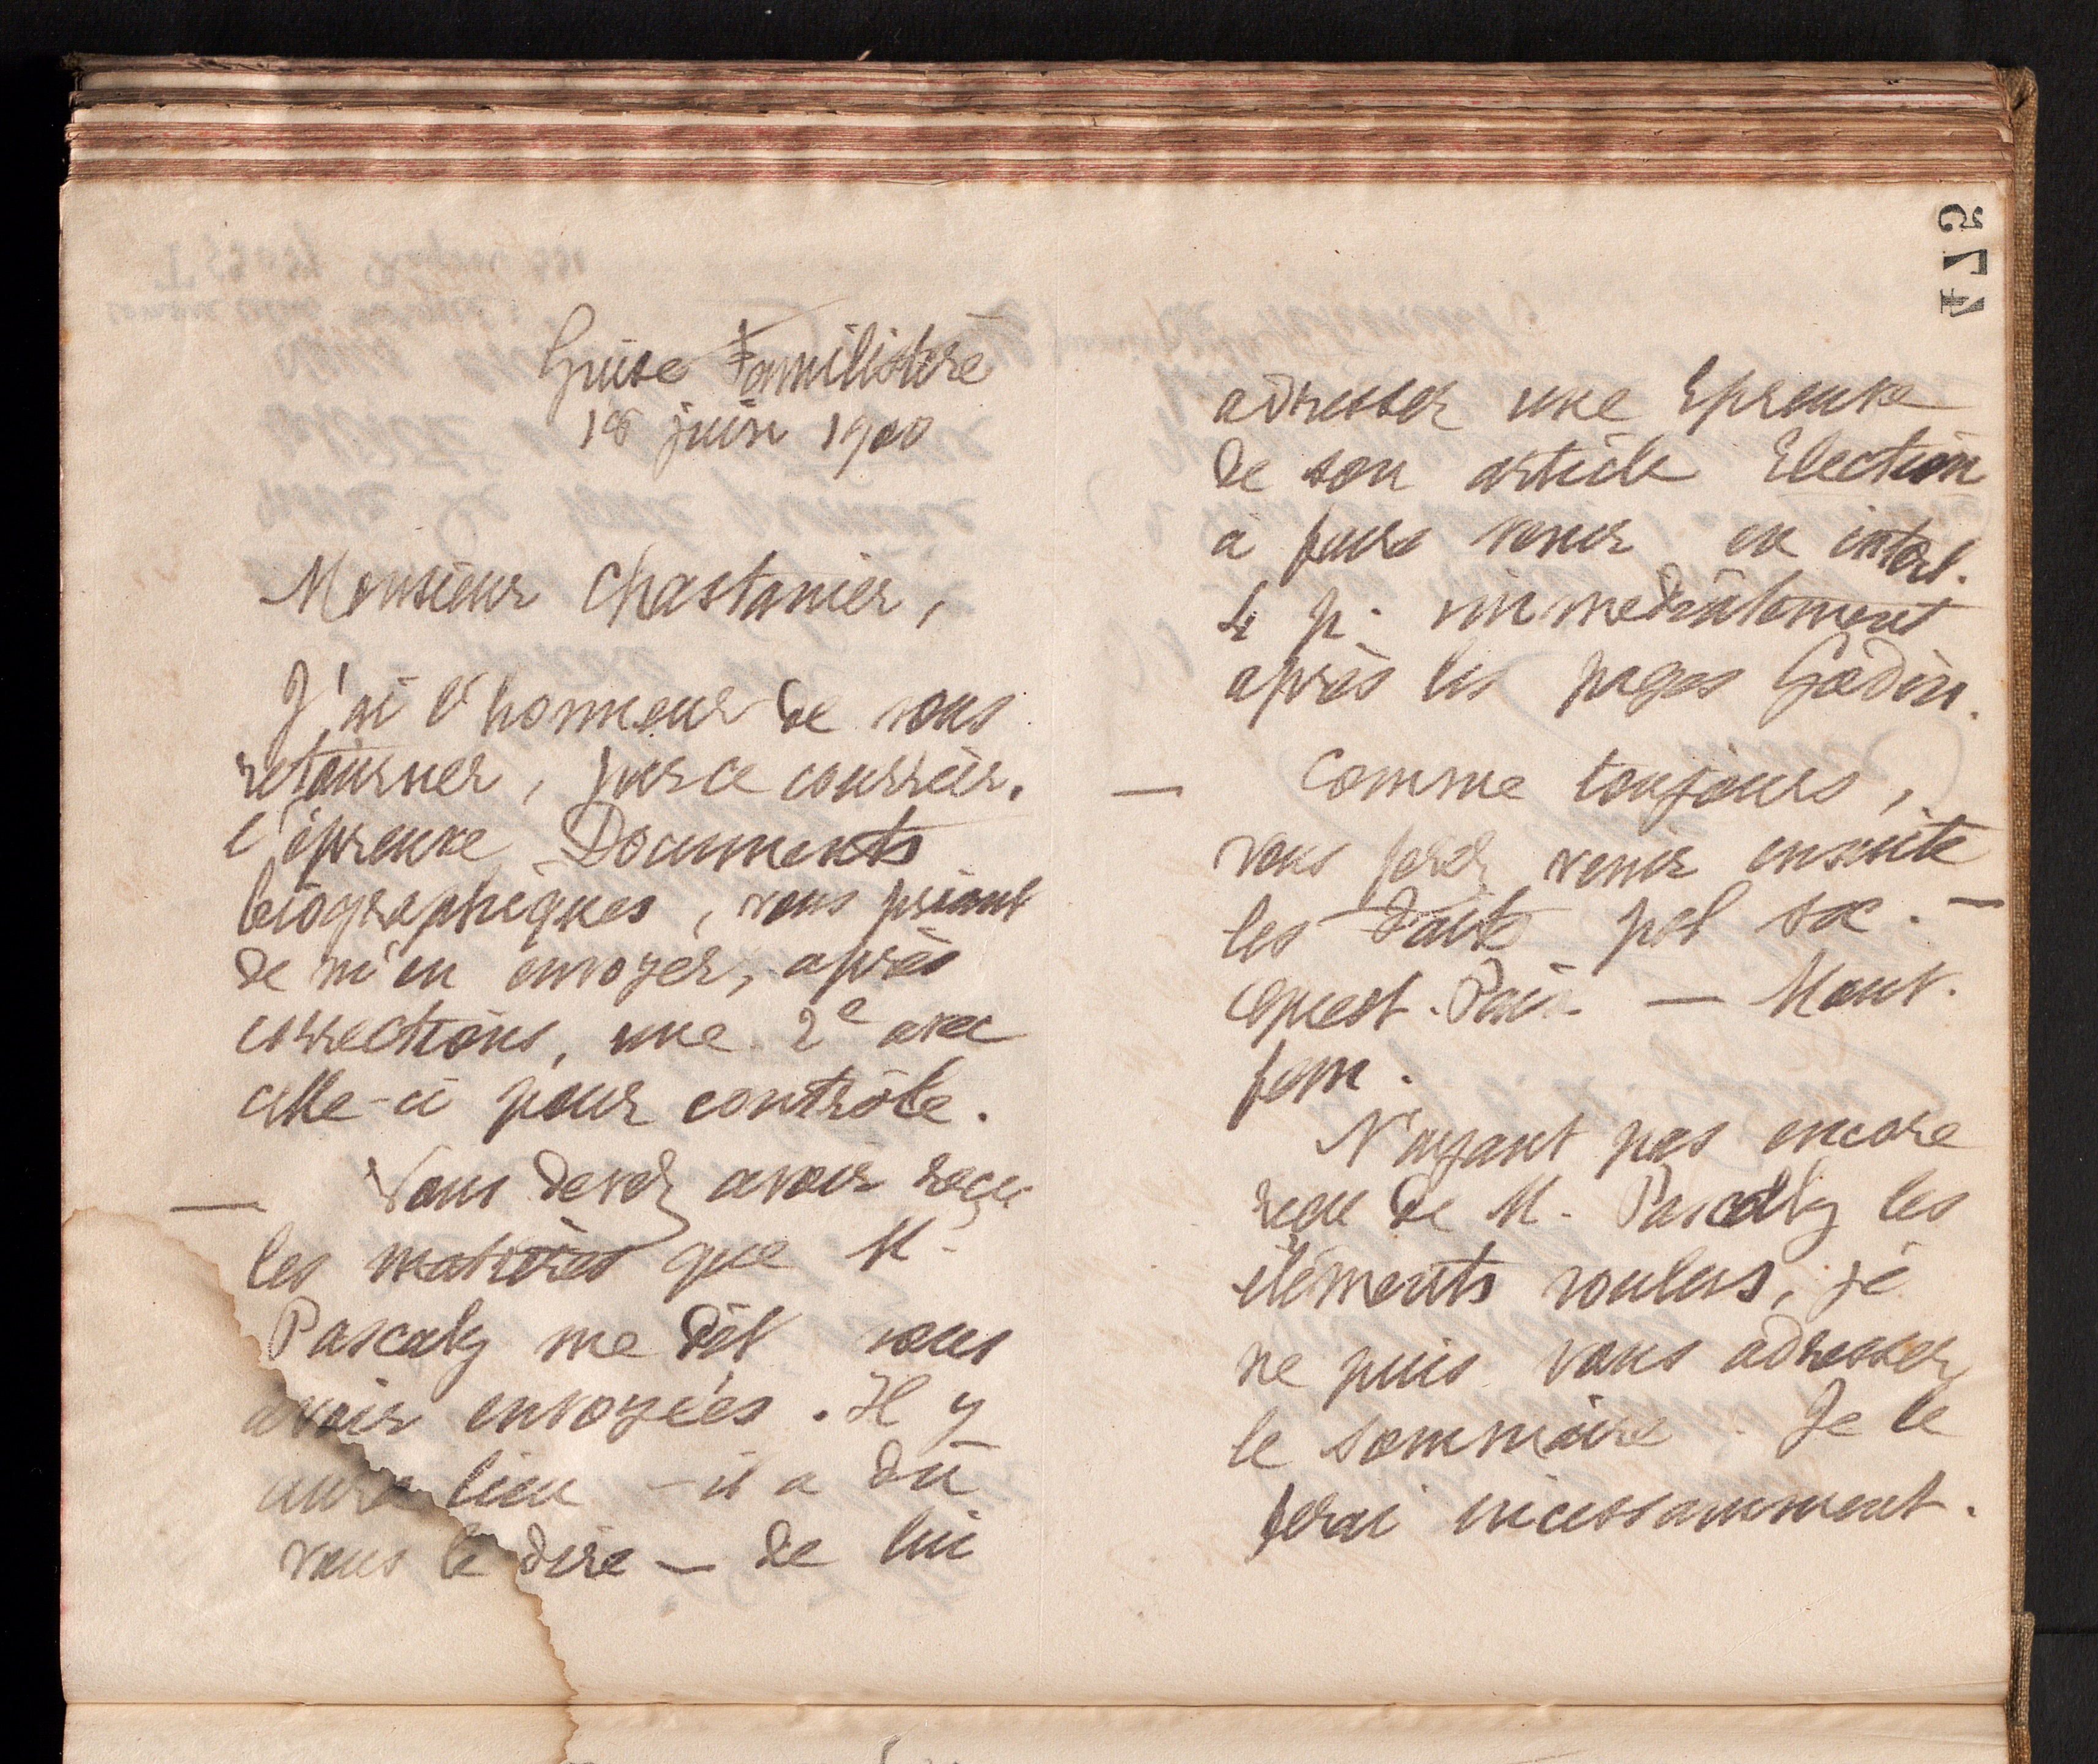 Guise Familistère
18 juin 1900
Monsieur Chastanier,
J'ai l'honneur de vous
retourner, par ce courrier.
l'épreuve Documents
biographiques, vous priant
de m'en envoyer, après
corrections, une 2e avec
celle-ci pour contrôle.
— Vous devez avoir reçu
les matières que M.
Pascaly me dit vous
avoir envoyées. Il y
aura lieu – il a dû
vous le dire — de lui
574
adresser une Epreuve
de son article Election
à faire venir en interl.
4 p. immédiatement
après les pages Godin.
— Comme toujours,
vous ferez venir ensuite
les Faits pol soc. —
Quest. Paix — Mouv.
fém.
N'ayant pas encore
reçu de M. Pascaly les
éléments voulus, je
ne puis vous adresser
le sommaire. Je le
ferai incessamment.